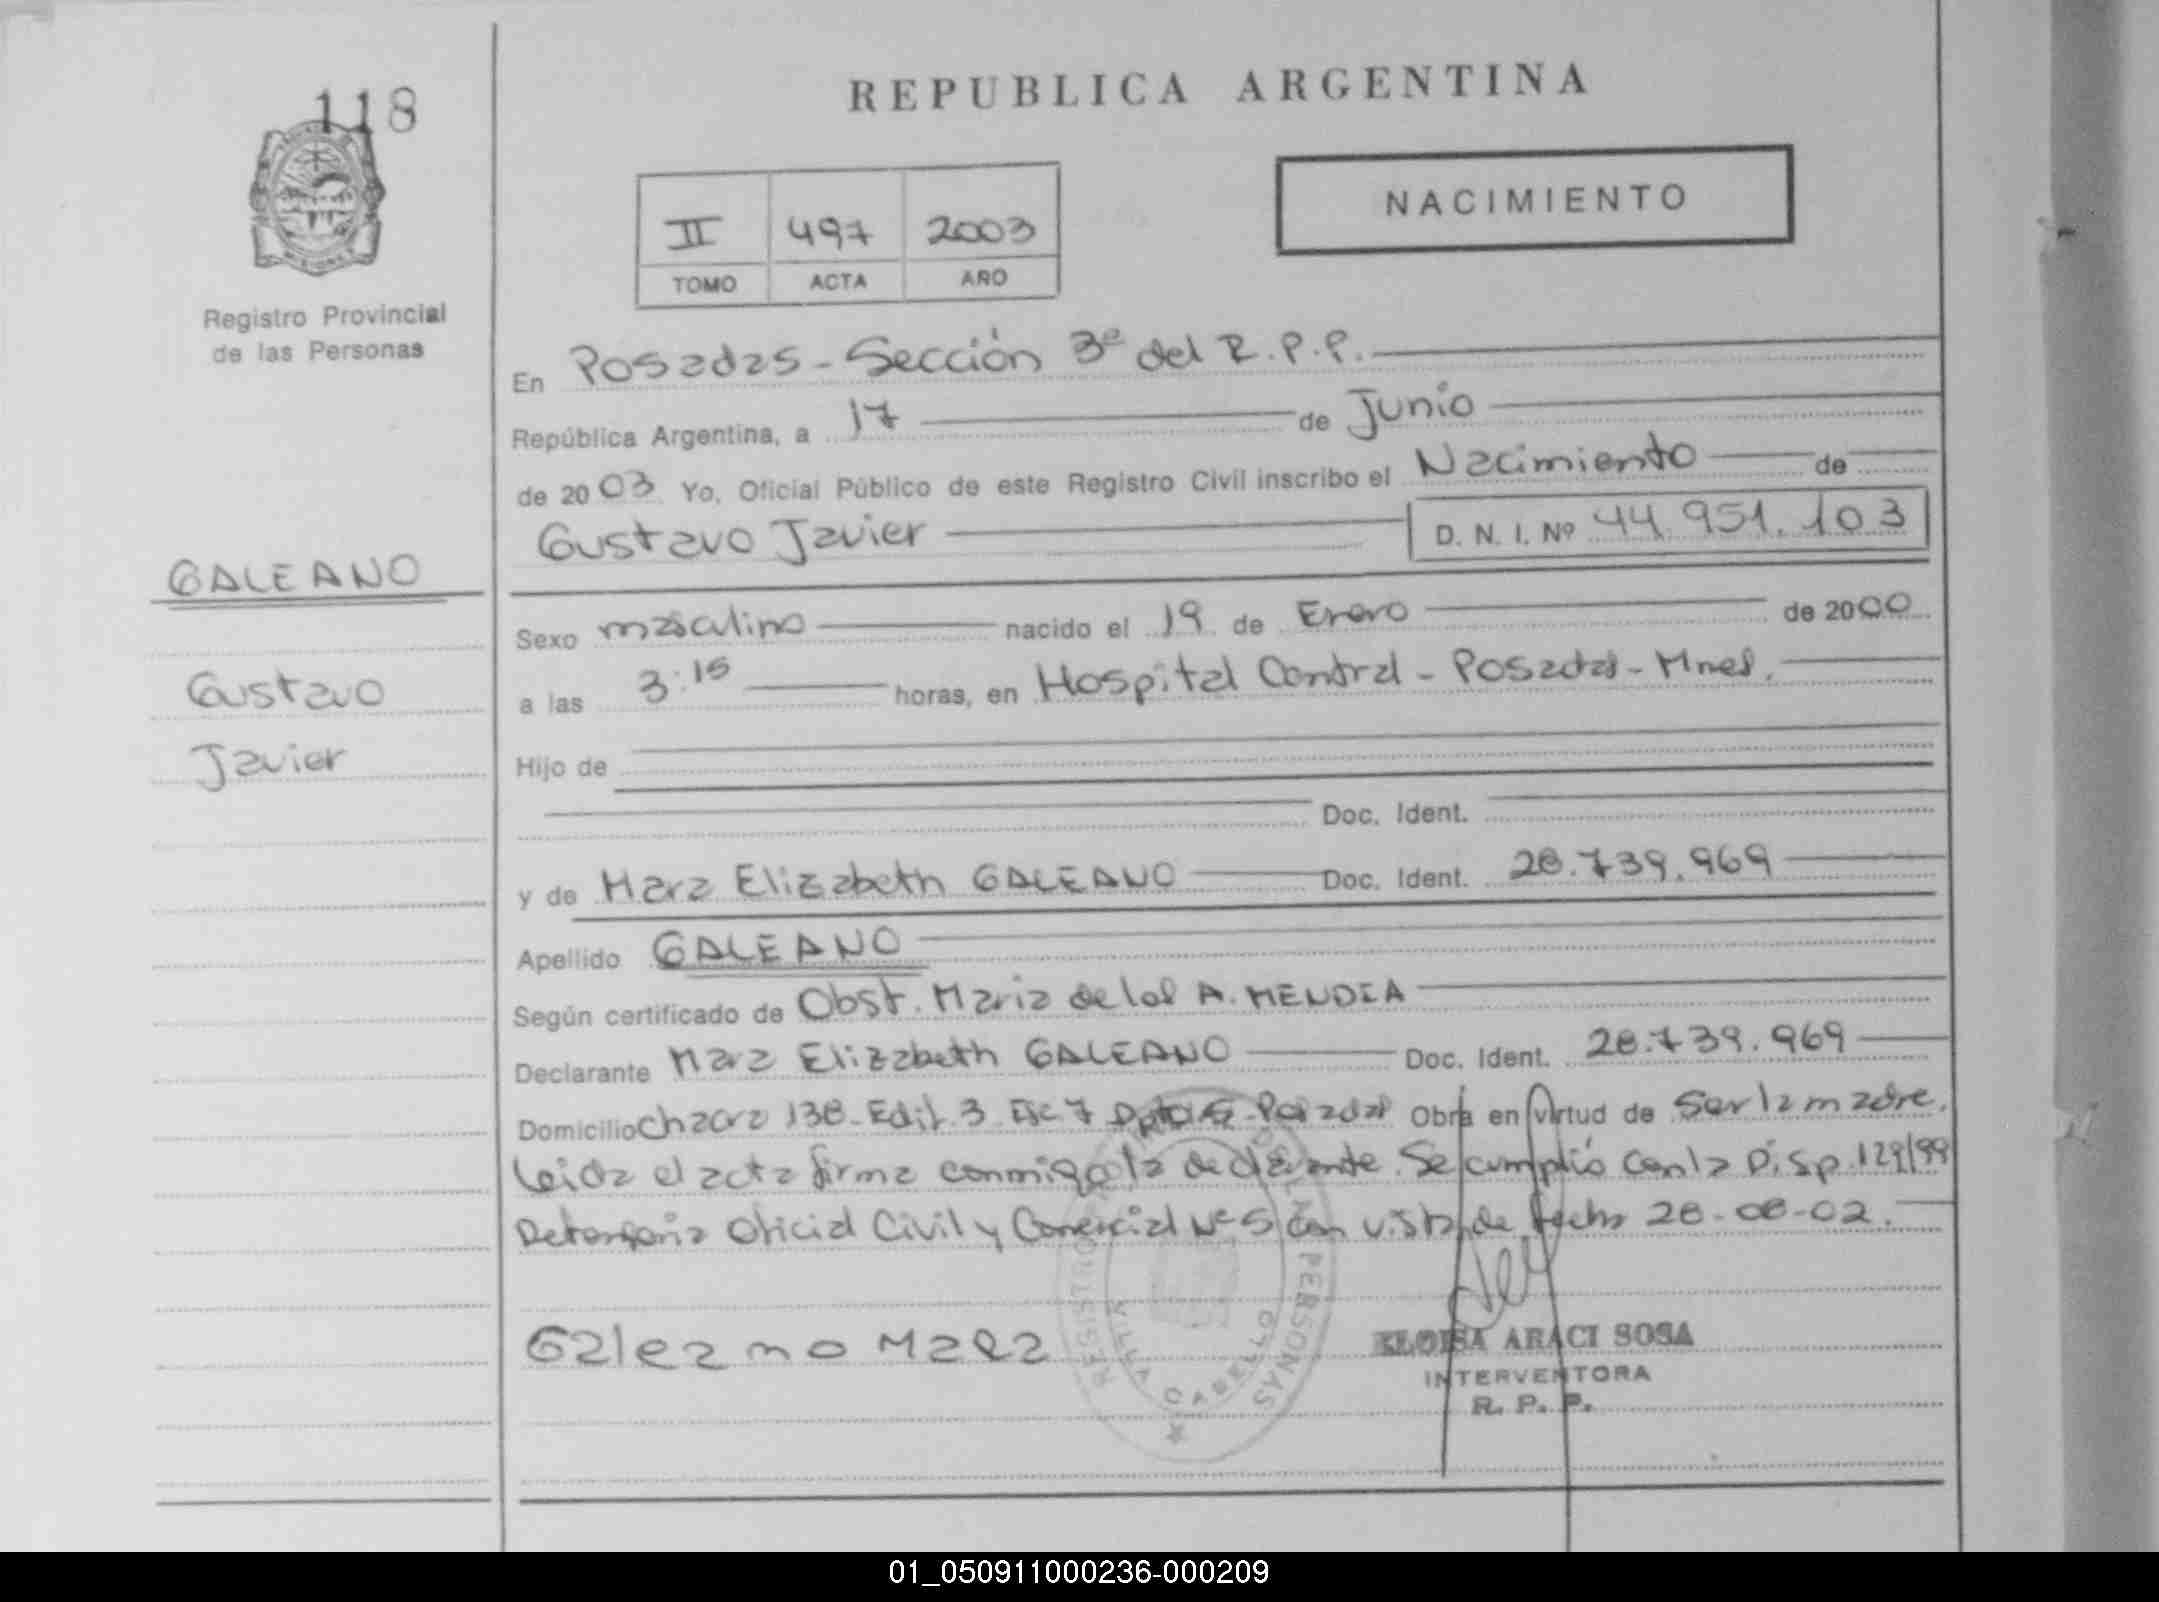 118
REPUBLICA ARGENTINA
NACIMIENTO
II 497 2003
TOMO ACTA AÑO
Registro Provincial
de las Personas
En Posadas - Sección 3ª del R.P.P.
República Argentina, a 17 de Junio
de 2003 Yo, Oficial Público de este Registro Civil inscribo el Nacimiento de
Gustavo Javier D. N. I. Nº 44.951.103
GALEANO
Gustavo
Javier
Sexo masculino nacido el 19 de Enero de 2000
a las 3:15 horas, en Hospital Central - Posadas - Mnes.
Hijo de
Doc. Ident.
y de Mara Elizabeth GALEANO Doc. Ident. 28.739.969
Apellido GALEANO
Según certificado de Obst. Maria de los A. MENDEA
Declarante Mara Elizabeth GALEANO Doc. Ident. 28.739.969
Domicilio Chacra 138 - Edif. 3 - Esc 7 Dpto Posadas Obra en virtud de Ser la madre.
Leida el acta firma conmigo la declarante. Se cumplió con la Disp. 129/99
Defensoria Oficial Civil y Comercial Nº 5 con vista de fecha 28-08-02.
Galeano Mara
REGISTRO DE LAS PERSONAS
VILLA CABELLO
ELOISA ARACI SOSA
INTERVENTORA
R. P. P.
01_050911000236-000209